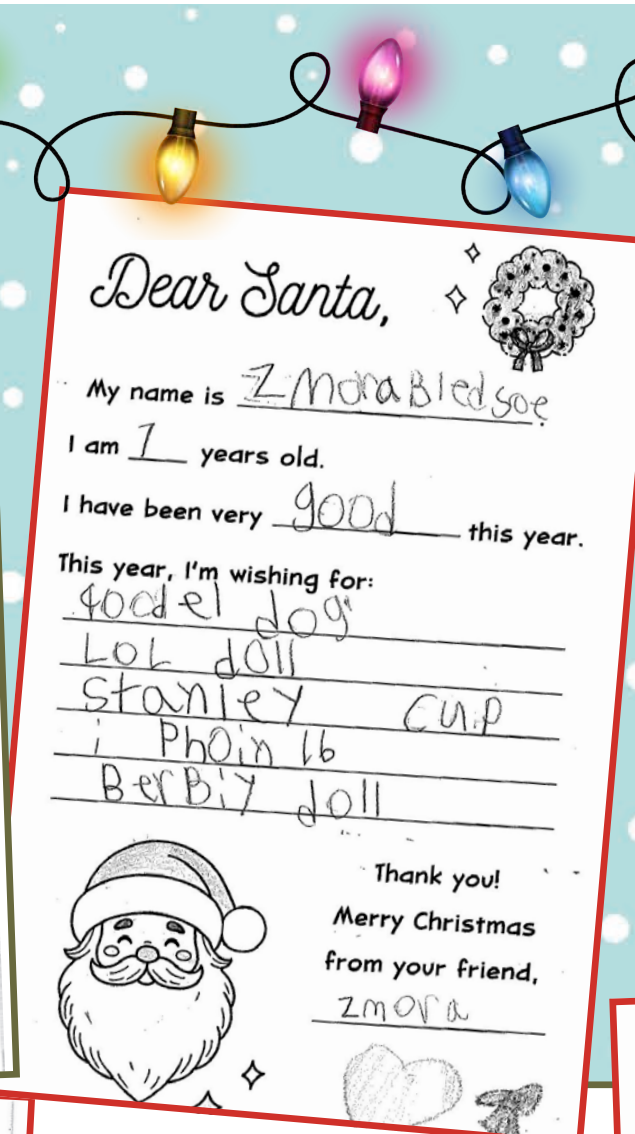 Dear Santa,
My name is Zmora Bledsoe
I am 7 years old.
I have been very good this year.
This year, I'm wishing for:
goodel dog
LOL doll
Stanley cup
i Phoin 16
BerBiy doll
Thank you!
Merry Christmas
from your friend,
zmora